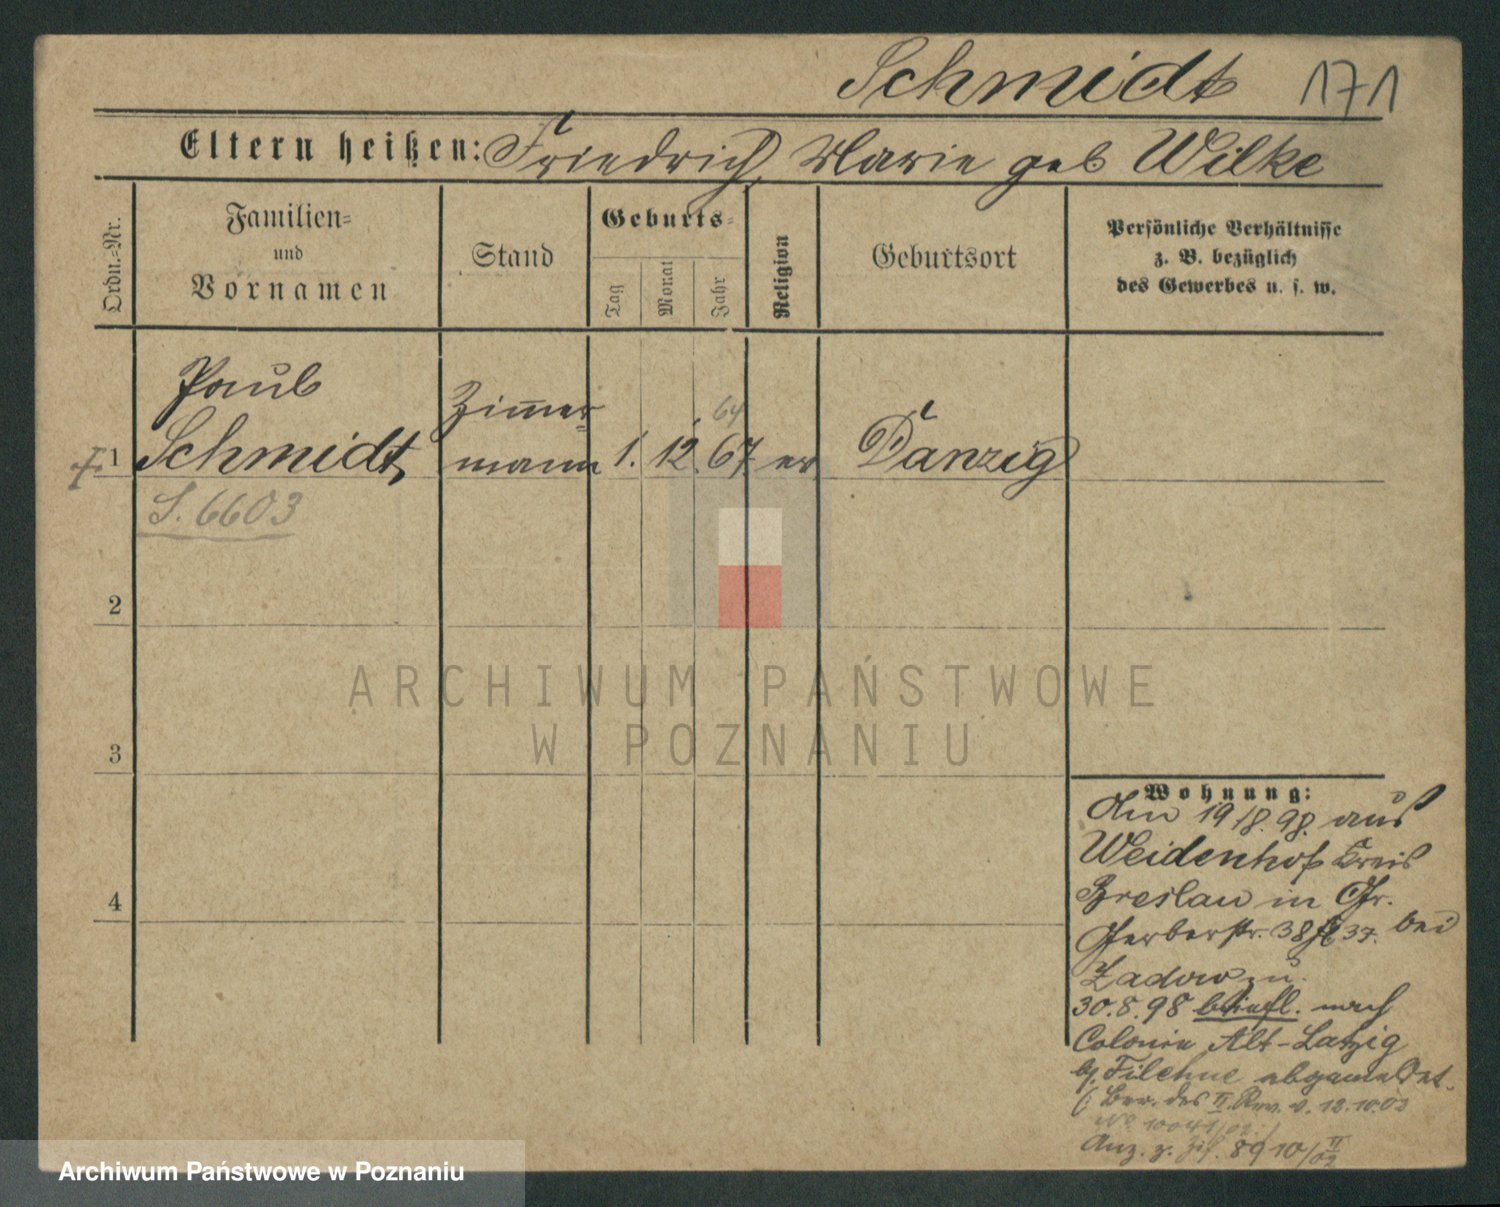 Schmidt 171
Eltern heißen: Friedrich, Marie geb Wilke
Ordn.-Nr.
Familien-
und
Vornamen
Stand
Geburts-
Tag
Monat
Jahr
Religion
Geburtsort
Persönliche Verhältnisse
z. B. bezüglich
des Gewerbes u. s. w.
Paul
Zimmer
64
1 Schmidt, mann 1. 12. 67. ev Danzig
S. 6603
2
ARCHIWUM PAŃSTWOWE
W POZNANIU
3
Wohnung:
Am 19/8. 98. aus
Weidenhof Kreis
Breslau in Gr.
Gerberstr. 38 37. bei
Zadow zu.
30.8.98 briefl. nach
Colonie Alt-Latzig
b/ Filehne abgemeldet.
4
(: Ber. des II. Rev. v. 12.10.02
No 10041/02.
Anz. z. 8910/II 02
Archiwum Państwowe w Poznaniu